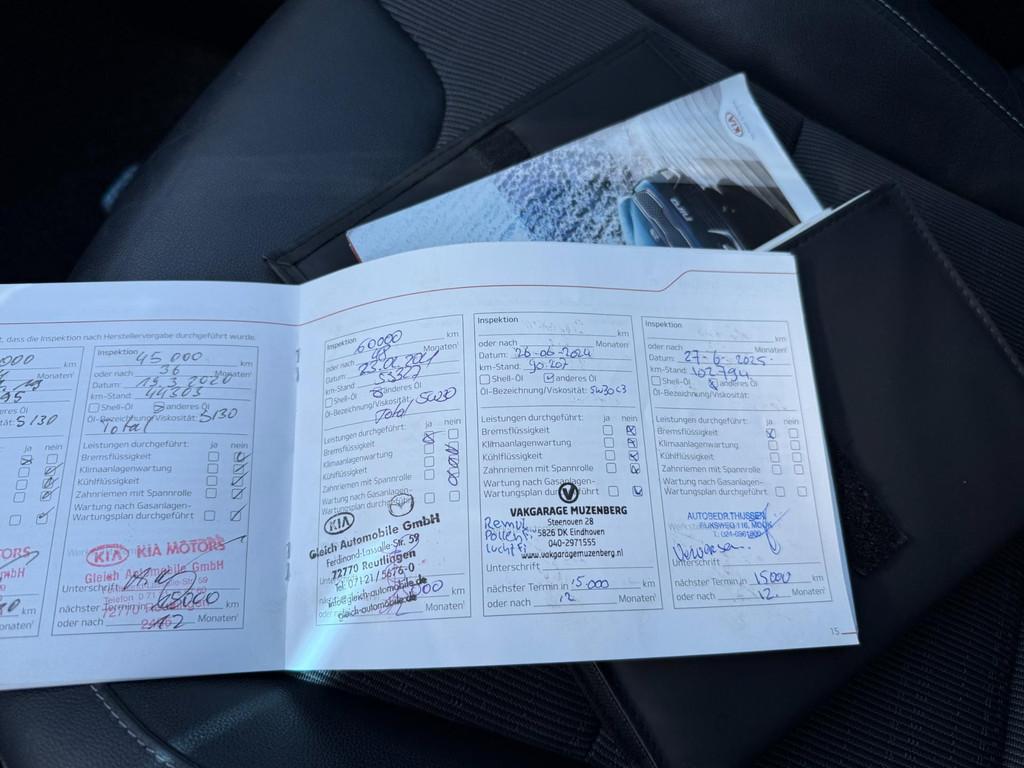 KIA
t, dass die Inspektion nach Herstellervorgabe durchgeführt wurde.
km
Monaten¹
anderes Öl
S130
ja nein
km
Monaten¹
Inspektion 45 000 km
oder nach 36 Monaten¹
Datum: 19.3.2020
km-Stand: 44303
Shell-Öl anderes Öl
Öl-Bezeichnung/Viskosität: S130
Total
Leistungen durchgeführt: ja nein
Bremsflüssigkeit
Klimaanlagenwartung
Kühlflüssigkeit
Zahnriemen mit Spannrolle
Wartung nach Gasanlagen-
Wartungsplan durchgeführt
KIA KIA MOTORS
Gleich Automobile GmbH
Unterschrift
nächster Termin in 65000 km
oder nach 12 Monaten¹
Inspektion 60000 km
oder nach 48 Monaten¹
Datum:
km-Stand: 53327
Shell-Öl anderes Öl
Öl-Bezeichnung/Viskosität:
Total 5W30
Leistungen durchgeführt: ja nein
Bremsflüssigkeit
Klimaanlagenwartung
Kühlflüssigkeit
Zahnriemen mit Spannrolle
Wartung nach Gasanlagen-
Wartungsplan durchgeführt
KIA
Gleich Automobile GmbH
Ferdinand-Lassalle-Str. 59
72770 Reutlingen
Tel. 07121/5676-0
info@gleich-automobile.de
gleich-automobile.de
km
oder nach Monaten¹
Inspektion
km
oder nach Monaten¹
Datum: 26-06-2024
km-Stand: 90.207
Shell-Öl anderes Öl
Öl-Bezeichnung/Viskosität: 5W30 C3
Leistungen durchgeführt: ja nein
Bremsflüssigkeit
Klimaanlagenwartung
Kühlflüssigkeit
Zahnriemen mit Spannrolle
Wartung nach Gasanlagen-
Wartungsplan durchgeführt
VAKGARAGE MUZENBERG
Steenoven 28
5826 DK Eindhoven
040-2971555
www.vakgaragemuzenberg.nl
Pollen Fi
Lucht Fi
Unterschrift
nächster Termin in 15.000 km
oder nach 12 Monaten¹
Inspektion
km
oder nach Monaten¹
Datum: 27-6-2025
km-Stand: 102794
Shell-Öl anderes Öl
Öl-Bezeichnung/Viskosität:
Leistungen durchgeführt: ja nein
Bremsflüssigkeit
Klimaanlagenwartung
Kühlflüssigkeit
Zahnriemen mit Spannrolle
Wartung nach Gasanlagen-
Wartungsplan durchgeführt
AUTOBEDR. THIJSSEN
Unterschrift
nächster Termin in 15000 km
oder nach 12. Monaten¹
15